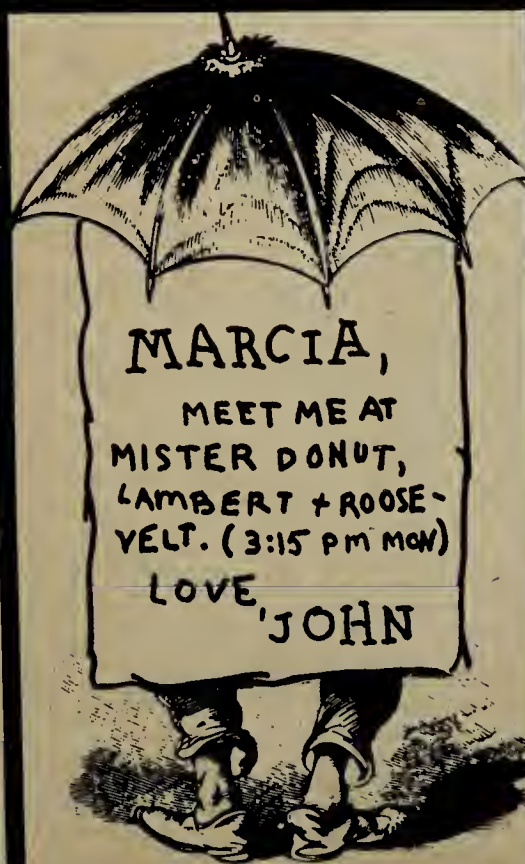 MARCIA,
MEET ME AT
MISTER DONUT,
LAMBERT + ROOSE-
VELT. (3:15 PM MON)
LOVE,
JOHN